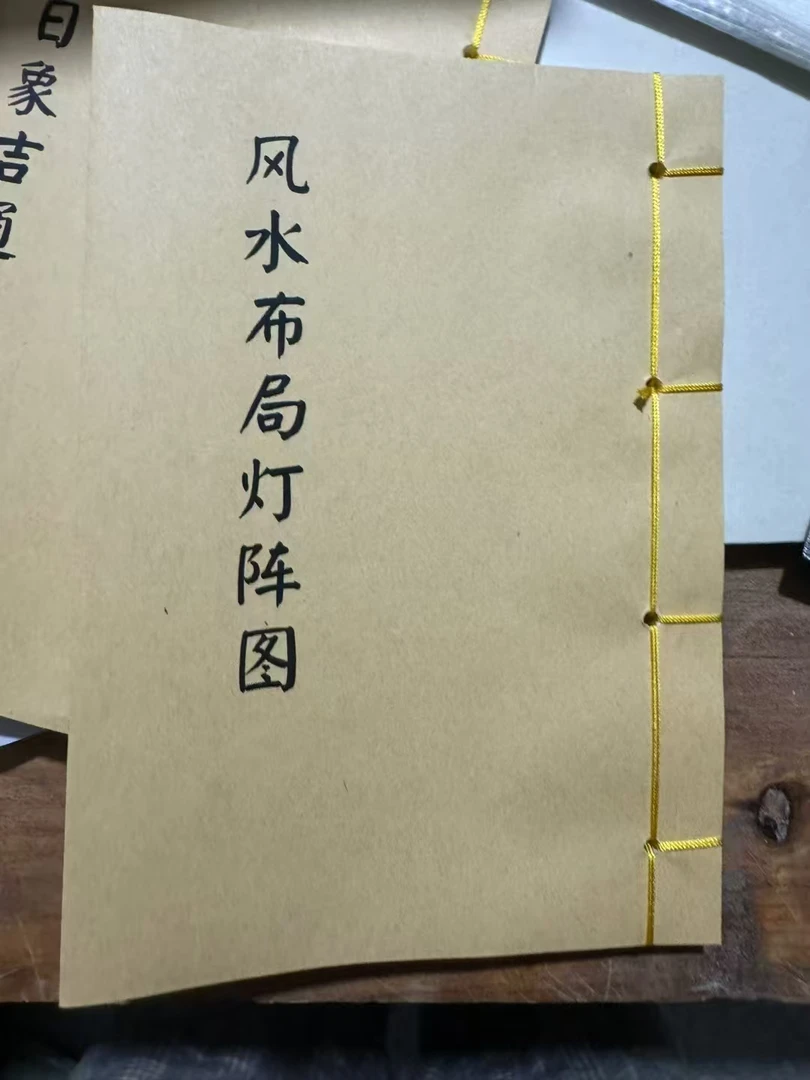 风水布局灯阵图
象吉